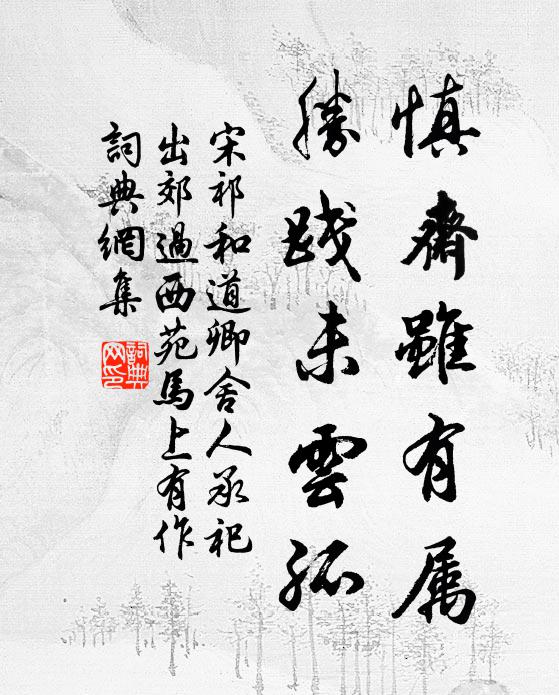 慎齋雖有属
勝践未雲孤
宋祁和道卿舍人承祀
出郊過西苑馬上有作
詞典網集
詞典
网印